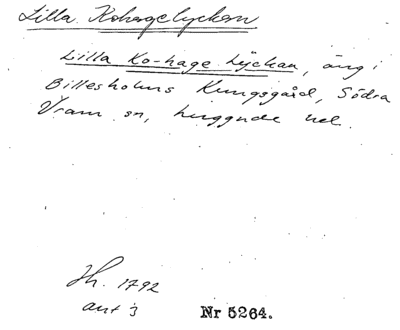 Lilla Kohagelyckan
Lilla Ko-hage Lyckan, äng i
Billesholms Kungsgård, Södra
Vram sn, Luggude hd.
Jh. 1792
akt 3
Nr 5264.